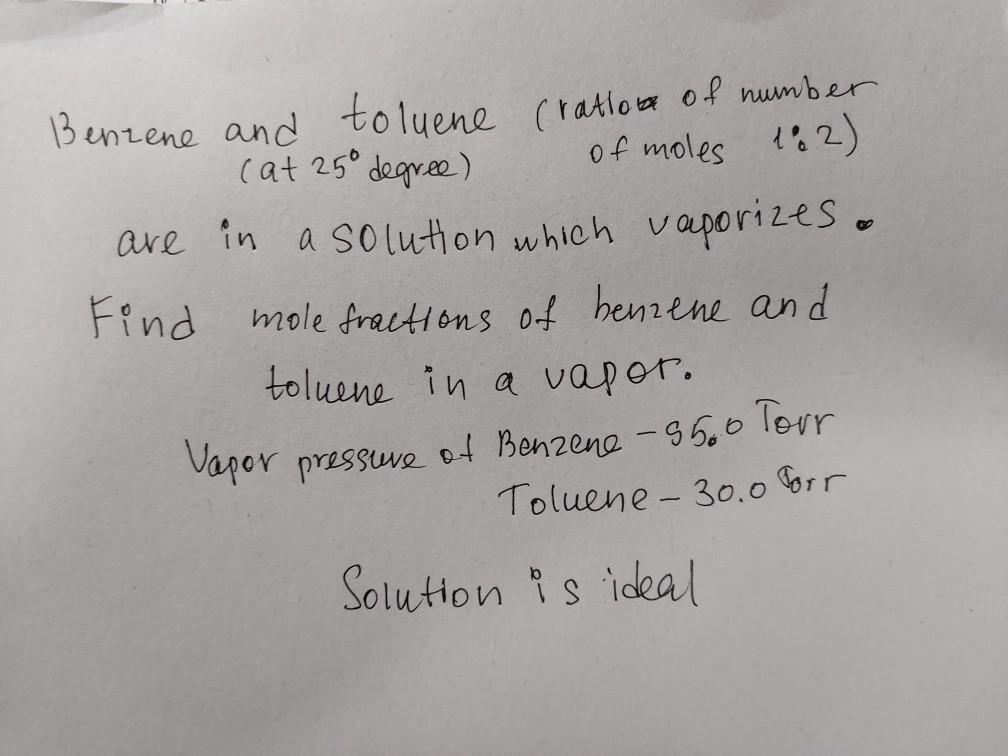 Benzene and toluene (ratio of number
(at 25° degree) of moles 1:2)
are in a solution which vaporizes.
Find mole fractions of benzene and
toluene in a vapor.
Vapor pressure of Benzene - 95.0 Torr
Toluene - 30.0 Torr
Solution is ideal